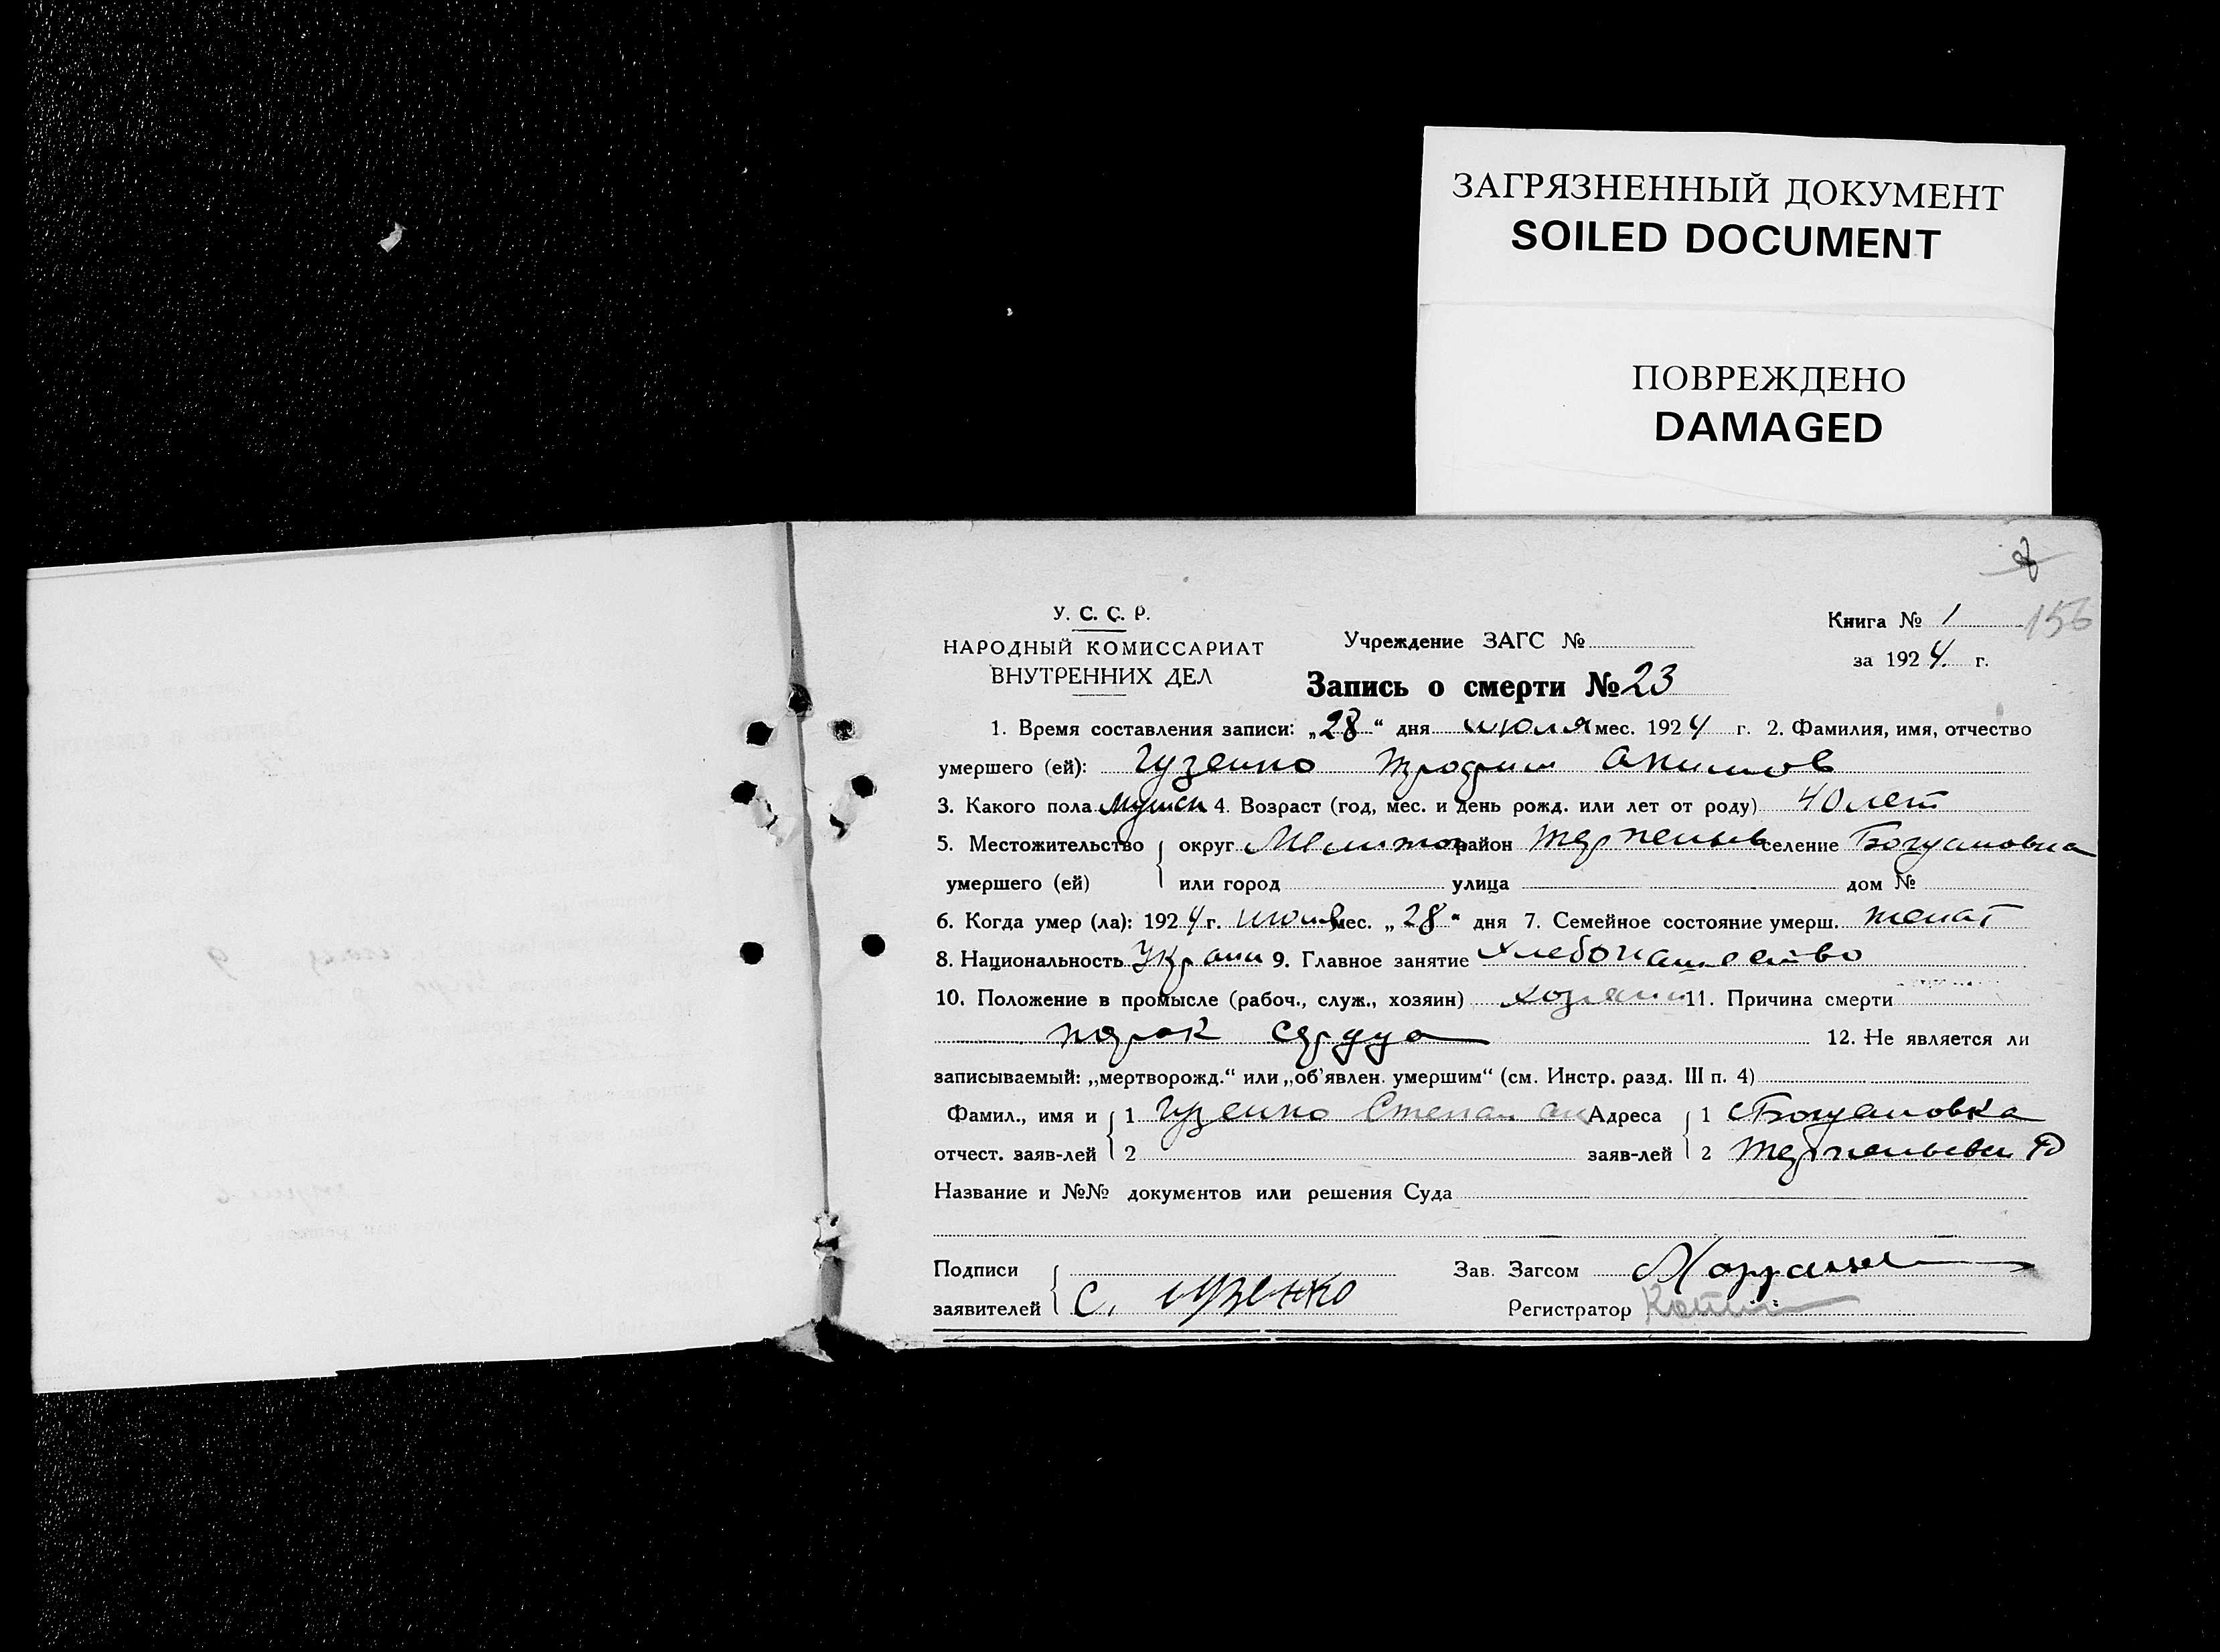 ЗАГРЯЗНЕННЫЙ ДОКУМЕНТ
SOILED DOCUMENT
ПОВРЕЖДЕНО
DAMAGED
8
У. С. С. Р.
НАРОДНЫЙ КОМИССАРИАТ
ВНУТРЕННИХ ДЕЛ
Учреждение ЗАГС №
Книга № 1 156
за 1924 г.
Запись о смерти № 23
1. Время составления записи: „28“ дня июля мес. 1924 г. 2. Фамилия, имя, отчество
умершего (ей): Гузенко Трофим Акимов
3. Какого пола мужск 4. Возраст (год, мес. и день рожд. или лет от роду) 40 лет
5. Местожительство округ Мелитоп район Терпеньев селение Богдановка
умершего (ей) или город улица дом №
6. Когда умер (ла): 1924 г. июля мес. „28“ дня 7. Семейное состояние умерш. женат
8. Национальность Украин 9. Главное занятие Хлебопашество
10. Положение в промысле (рабоч., служ., хозяин) хозяин 11. Причина смерти
порок сердца 12. Не является ли
записываемый: „мертворожд.“ или „об'явлен. умершим“ (см. Инстр. разд. III п. 4)
Фамил., имя и 1 Гузенко Степан Ак Адреса 1 с Богдановка
отчест. заяв-лей 2 заяв-лей 2 Терпеньевск Р
Название и №№ документов или решения Суда
Подписи Зав. Загсом
заявителей С. Гузенко Регистратор